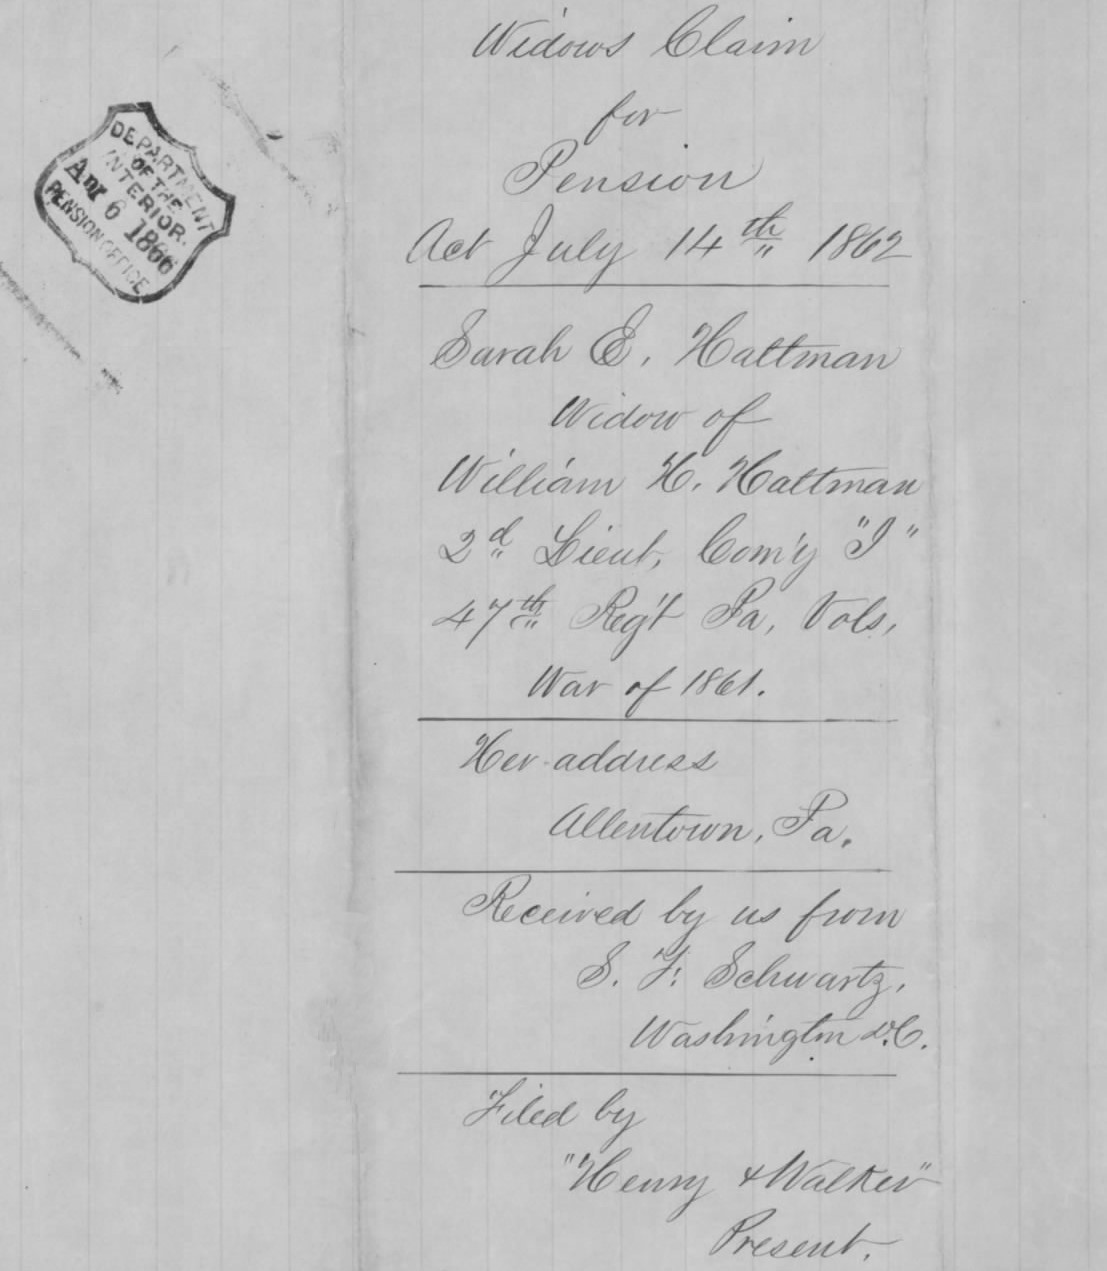 Widows Claim
for
Pension
Act July 14th 1862
DEPARTMENT
OF THE
INTERIOR.
Apr 6 1866
PENSION OFFICE
Sarah E. Haltman
Widow of
William H. Haltman
2d Lieut, Com'y "I"
47th Reg't Pa, Vols,
War of 1861.
Her address
Allentown, Pa.
Received by us from
S. F. Schwartz,
Washington D.C.
Filed by
"Henry & Walker"
Present.